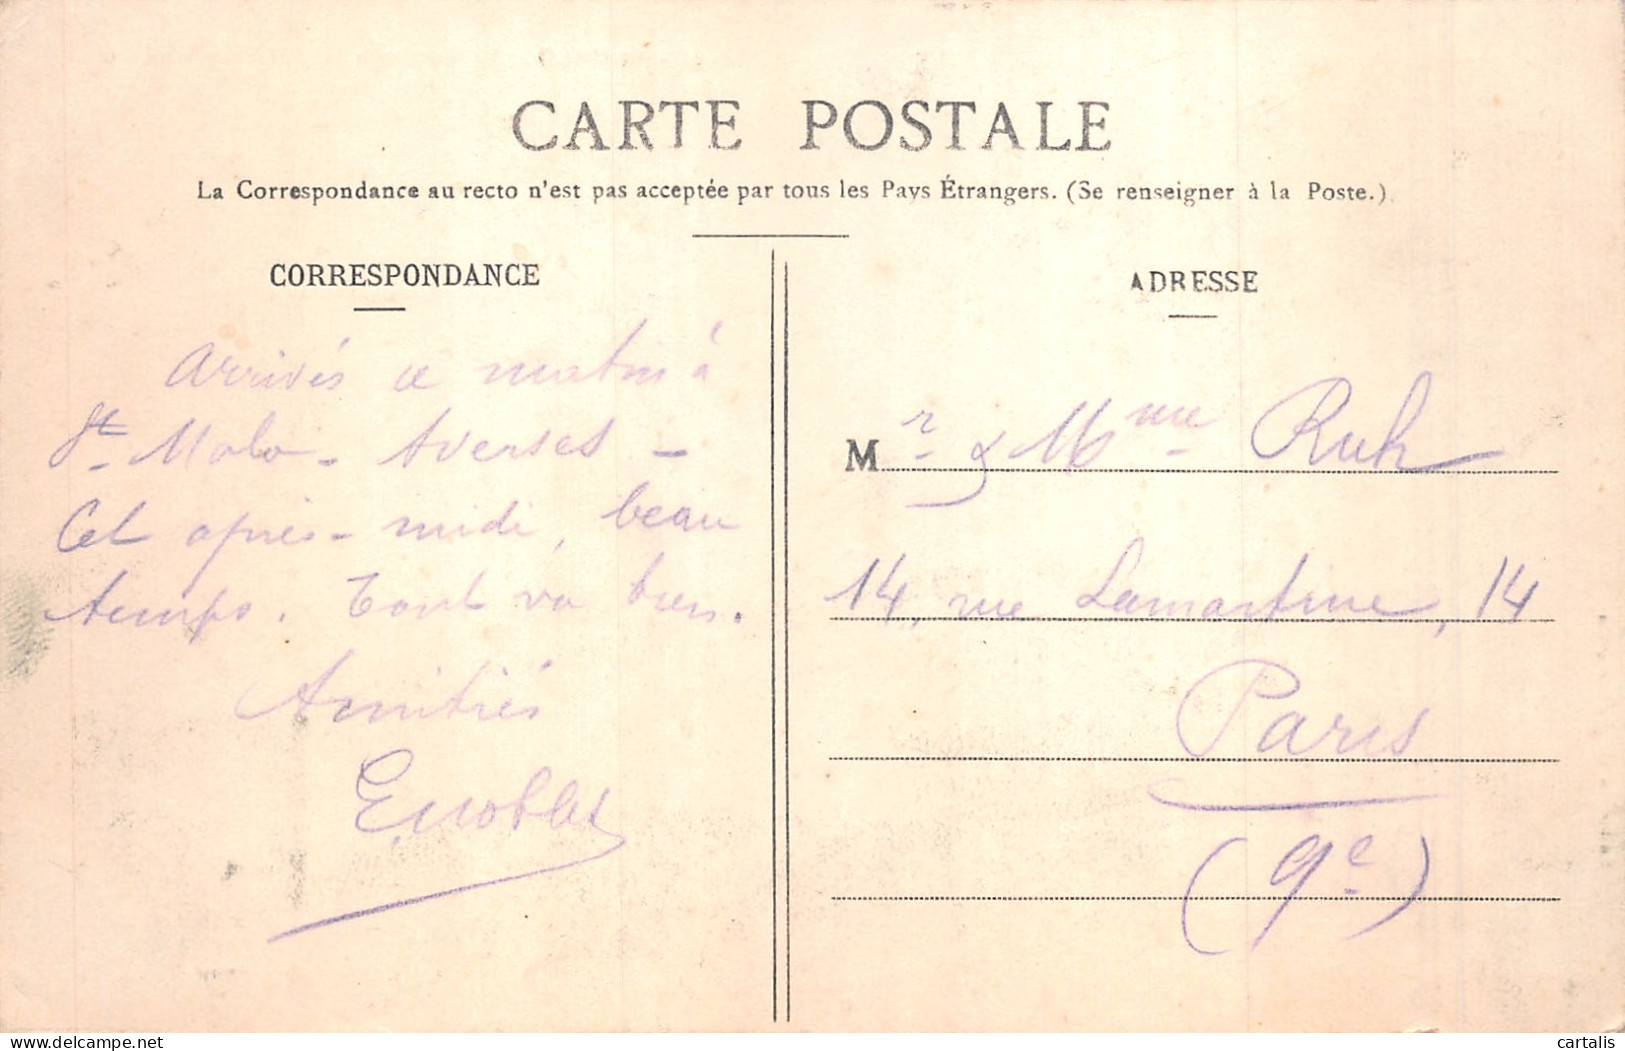 CARTE POSTALE
La Correspondance au recto n'est pas acceptée par tous les Pays Étrangers. (Se renseigner à la Poste.)
CORRESPONDANCE
Arrivés ce matin à
St-Malo - Averses -
Cet après-midi, beau
temps. Tout va bien.
Amitiés
ADRESSE
Mr & Mme Ruh
14, rue Lamartine, 14
Paris
(9e)
delcampe.net
cartalis